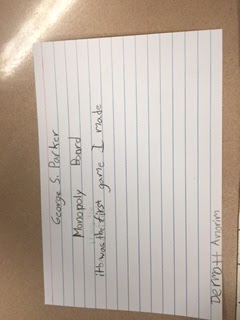 George S. Parker
Monopoly Board
was the first game I made
Dermott Anorim